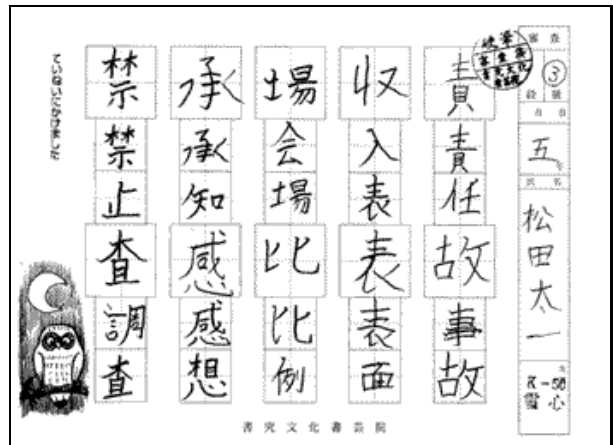 審査
3
段級
五年
氏名
松田太一
責責任故事故
収入表表表面
場会場比比例
承承知感感想
禁禁止査調査
ていねいにかけました
書究文化書芸院